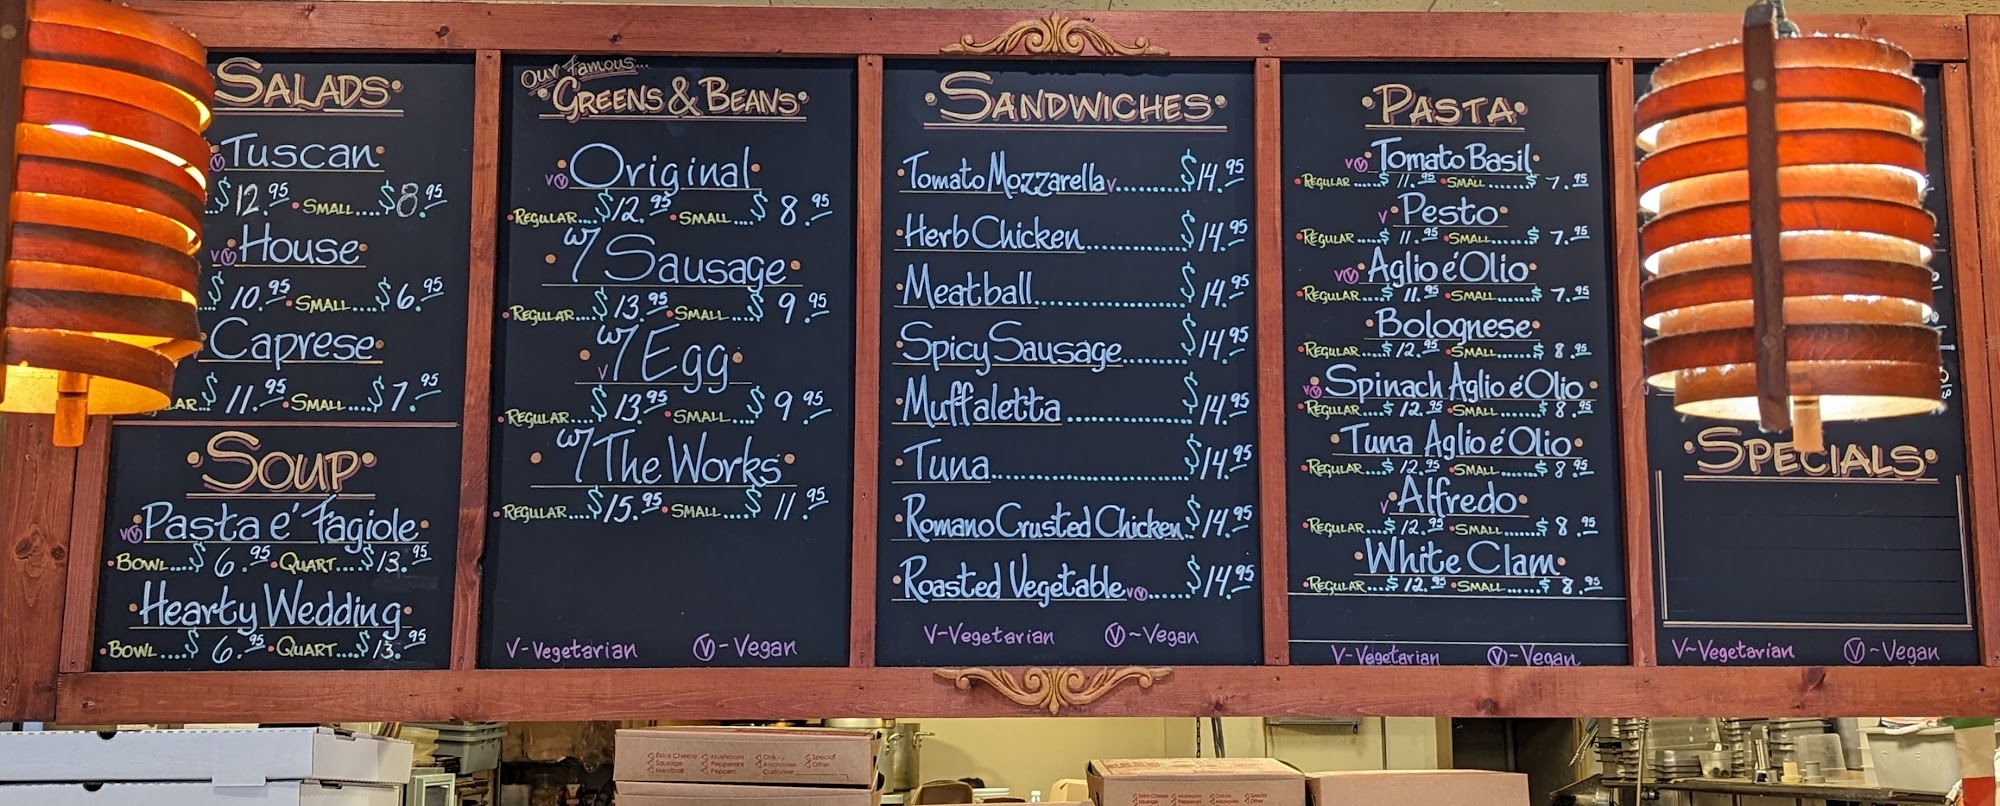 •SALADS•
ⓥ Tuscan•
$12.95 •SMALL....$8.95
vⓥ •House•
$10.95 •SMALL....$6.95
Caprese•
$11.95 •SMALL....$7.95
•SOUP•
vⓥ •Pasta e' Fagiole•
•BOWL....$6.95 •QUART....$13.95
•Hearty Wedding•
•BOWL....$6.95 •QUART....$13.95
Our Famous...
•GREENS & BEANS•
vⓥ •Original•
•REGULAR....$12.95 •SMALL....$8.95
•w/ Sausage•
•REGULAR....$13.95 •SMALL....$9.95
v •w/ Egg•
•REGULAR....$13.95 •SMALL....$9.95
•w/ The Works•
•REGULAR....$15.95 •SMALL....$11.95
V-Vegetarian ⓥ-Vegan
•SANDWICHES•
•Tomato Mozzarella v........$14.95
•Herb Chicken..........$14.95
•Meatball..........$14.95
•Spicy Sausage......$14.95
•Muffaletta..........$14.95
•Tuna..........$14.95
•Romano Crusted Chicken..$14.95
•Roasted Vegetable vⓥ......$14.95
V-Vegetarian ⓥ~Vegan
•PASTA•
vⓥ •Tomato Basil•
•REGULAR....$11.95 •SMALL......$7.95
v •Pesto•
•REGULAR....$11.95 •SMALL......$7.95
vⓥ •Aglio é Olio•
•REGULAR....$11.95 •SMALL......$7.95
•Bolognese•
•REGULAR....$12.95 •SMALL......$8.95
vⓥ •Spinach Aglio é Olio•
•REGULAR....$12.95 •SMALL......$8.95
•Tuna Aglio é Olio•
•REGULAR....$12.95 •SMALL......$8.95
v •Alfredo•
•REGULAR....$12.95 •SMALL......$8.95
•White Clam•
•REGULAR....$12.95 •SMALL......$8.95
V-Vegetarian ⓥ-Vegan
•SPECIALS•
V~Vegetarian ⓥ~Vegan
Extra Cheese Mushroom Special
Sausage Pepperoni Anchovies Other
Meatball Peppers Customer
Extra Cheese Mushroom Onions Special
Sausage Pepperoni Anchovies Other